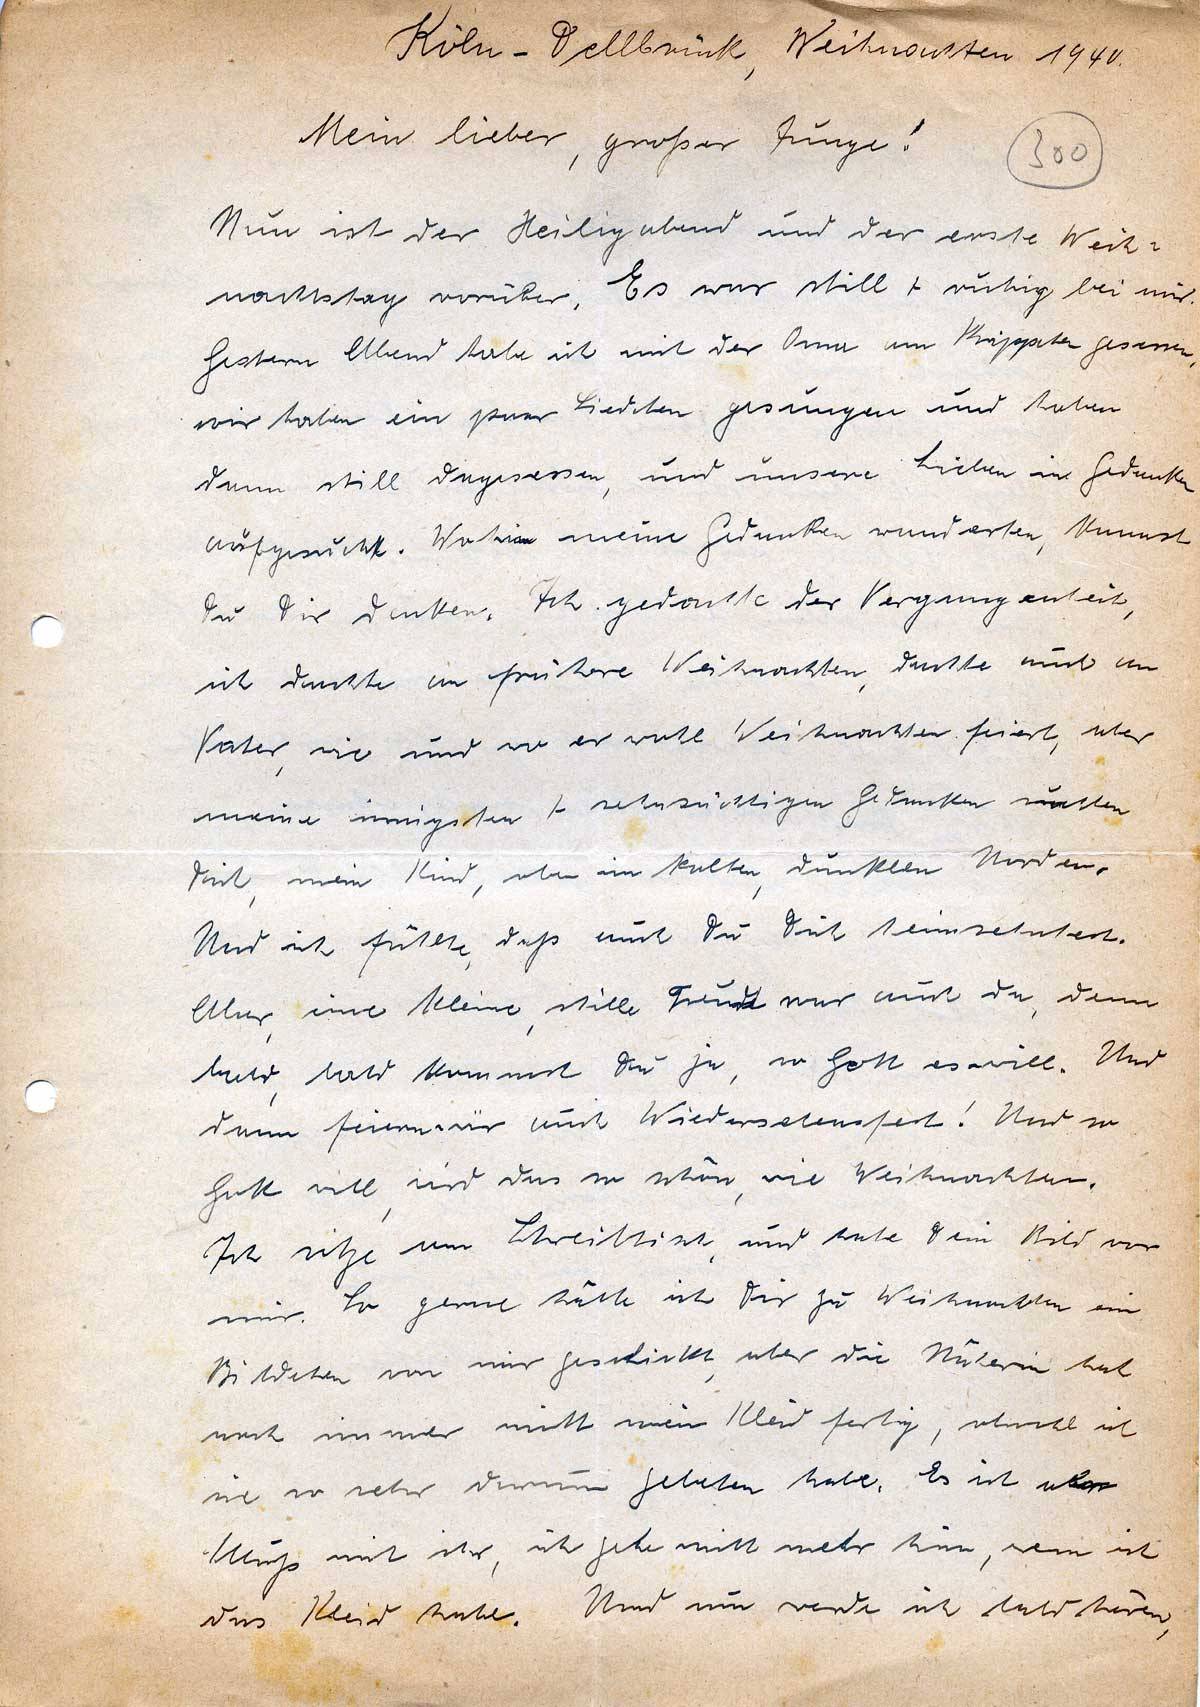 Köln-Dellbrück, Weihnachten 1940.
Mein lieber, großer Junge!
300
Nun ist der Heiligabend und der erste Weih=
nachtstag vorüber. Es war still + ruhig bei mir.
Gestern Abend habe ich mit der Oma am Krippchen gesessen,
wir haben ein paar Liedchen gesungen und haben
dann still dagesessen, und unsere Lieben in Gedanken
aufgesucht. Wohin meine Gedanken wanderten, kannst
Du Dir denken. Ich gedachte der Vergangenheit,
ich dachte an frühere Weihnachten, dachte auch an
Vater, wie und wo er wohl Weihnachten feiert, aber
meine innigsten + sehnsüchtigen Gedanken suchten
Dich, mein Kind, oben im kalten, dunklen Norden.
Und ich fühlte, daß auch Du Dich heimsehntest.
Aber, eine kleine, stille Freude war auch da, denn
bald, bald kommst Du ja, so Gott es will. Und
dann feiern wir auch Wiedersehensfest! Und so
Gott will, wird das so schön, wie Weihnachten.
Ich sitze am Schreibtisch, und habe Dein Bild vor
mir. So gerne hätte ich Dir zu Weihnachten ein
Bildchen von mir geschickt, aber die Näherin hat
noch immer nicht mein Kleid fertig, obwohl ich
sie so sehr darum gebeten habe. Es ist aber
Schluß mit ihr, ich gehe nicht mehr hin, wenn ich
das Kleid habe. Und nun werde ich bald hören,